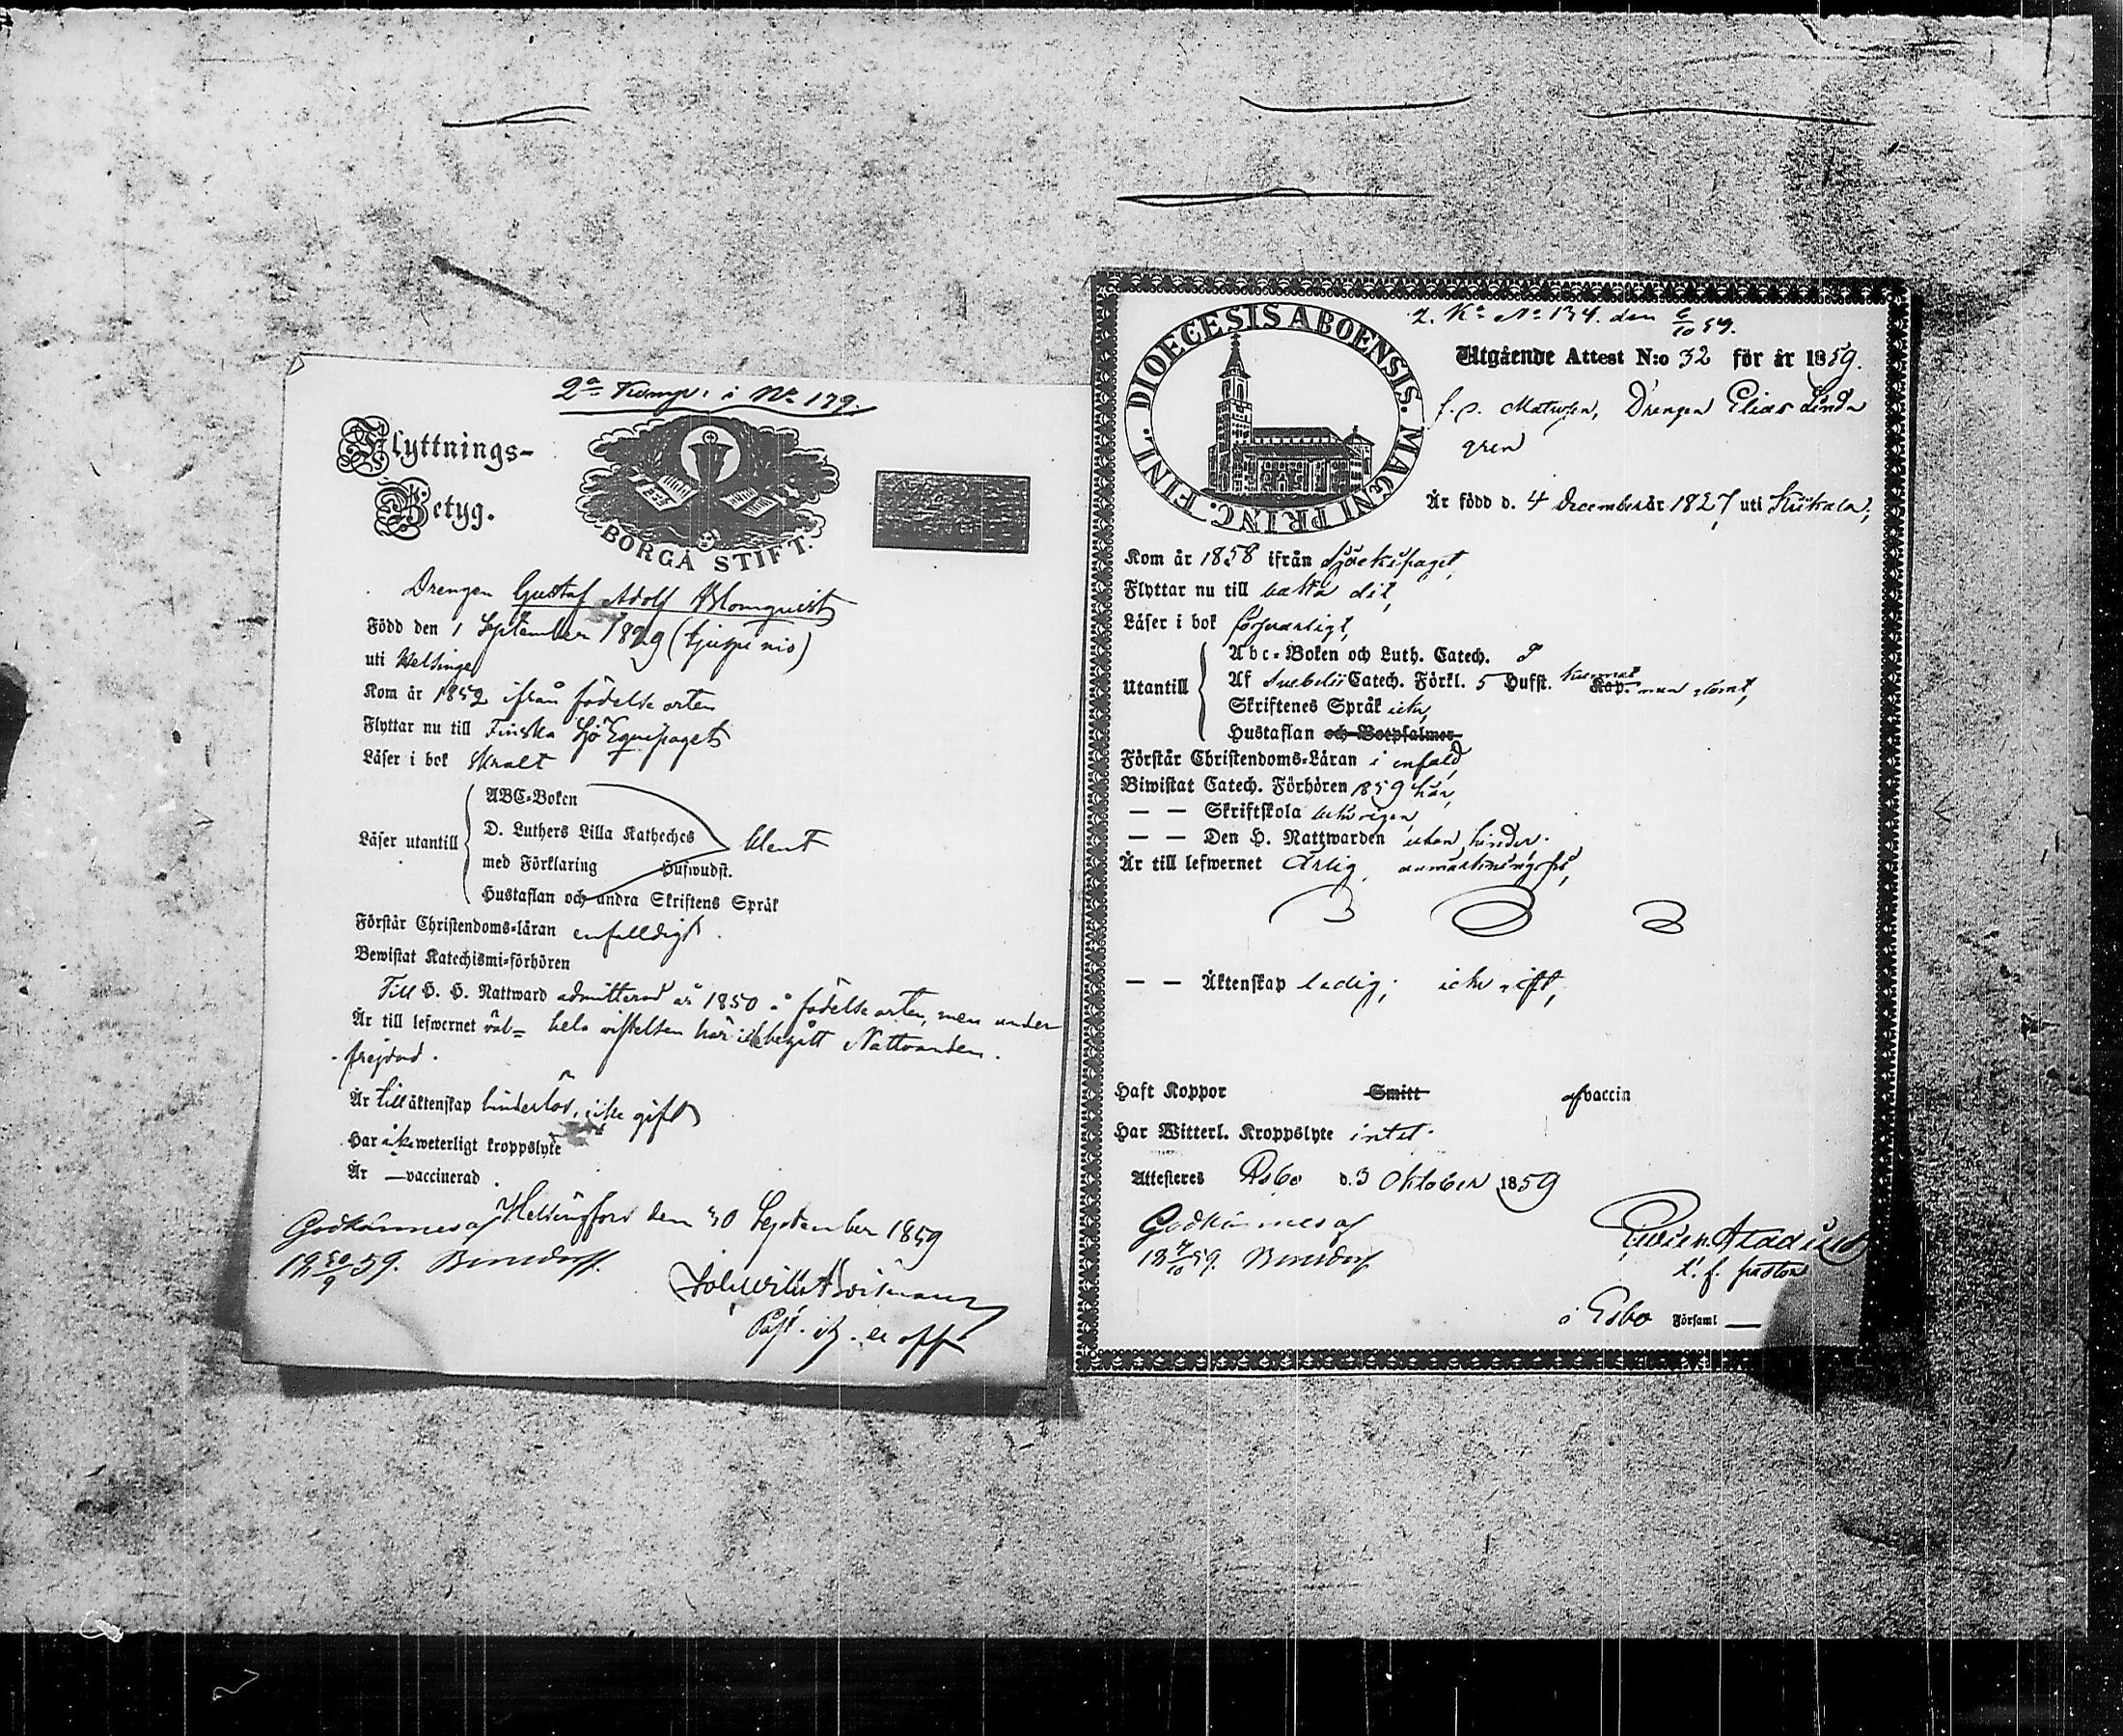 2:a Komp: i No 179.
Flyttnings-
Betyg.
BORGÅ STIFT.
Drengen Gustaf Adolf Blomqvist
Född den 1 September 1829 (tjugu nio)
uti Helsinge
Kom år 1852 ifrån födelse orten
Flyttar nu till Finska Sjö Equipaget
Läser i bok Skralt
Läser utantill
ABC-Boken
D. Luthers Lilla Katheches
med Förklaring Hufwudst.
Hustaflan och andra Skriftens Språk
klent
Förstår Christendoms-läran enfaldigt.
Bewistat Katechismi-förhören
Till H. H. Nattward admitterad år 1850 i födelse orten, men under
Är till lefwernet väl= hela vistelsen här ej begått Nattvarden.
frejdad.
Är till äktenskap hinderlös, icke gift
Har icke weterligt kroppslyte
Är — vaccinerad.
Helsingfors den 30 September 1859
Godkännes af
18 30/9 59.
Past.
2. K. No 134. den 6/10 59.
DIOECESIS ABOENSIS. MAGNI PRINC. FINL.
Utgående Attest N:o 32 för år 1859.
f. d. Matrosen, Drengen Elias Lind
gren
Är född d. 4 December år 1827 uti
Kom år 1858 ifrån Sjöekipaget,
Flyttar nu till dit,
Läser i bok försvarligt,
Utantill
Abc-Boken och Luth. Catech.
Af Svebelii Catech. Förkl. 5 Hufst. Kap.
Skriftenes Språk icke,
Hustaflan och Botpsalmer
Förstår Christendoms-Läran i enfald,
Biwistat Catech. Förhören 1859 här,
— — Skriftskola behörigen,
— — Den H. Nattwarden utan hinder.
Är till lefwernet Ärlig, anmärkningsfri,
— — Äktenskap ledig; icke gift,
Haft Koppor Smitt af vaccin
Har Witterl. Kroppslyte intet.
Attesteres Esbo d. 3 Oktober 1859
Godkännes af
t. f. pastor
i Esbo Församl —